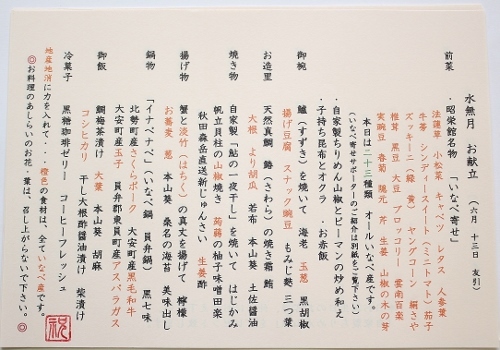 水無月　お献立　（六月　十三日　友引）
前菜　・昭栄館名物　「いなべ寄せ」
法蓮草　小松菜　キャベツ　レタス　人参葉
牛蒡　シンディースイート（ミニトマト）茄子
ズッキーニ（緑　黄）　ヤングコーン　絹さや
椎茸　黒豆　大豆　ブロッコリー　雲南百薬
実豌豆　春菊　隠元　芹　生姜　山椒の木の芽
本日は二十三種類　オールいなべ産です。
（いなべ寄せサポーターのご紹介は別紙をご覧下さい）
・自家製ちりめん山椒とピーマンの炒め和え
・子持ち昆布とオクラ　・お赤飯
御椀　鱸（すずき）を焼いて　海老　玉葱　黒胡椒
揚げ豆腐　スナック豌豆　もみじ麩　三つ葉
お造里　天然真鯛　鰆（さわら）の焼き霜　鮪
大根　より胡瓜　若布　本山葵　土佐醤油
焼き物　自家製「鮎の一夜干し」を焼いて　はじかみ
帆立貝柱の山椒焼き　蒟蒻の柚子味噌田楽
秋田森岳直送新じゅんさい　生姜酢
揚げ物　蟹と淡竹（はちく）の真丈を揚げて　檸檬
お蕎麦　葱　本山葵　桑名の海苔　美味出し
鍋物　「イナベナベ」（いなべ鍋　員弁鍋）　黒七味
北勢町産さくらポーク　大安町産黒毛和牛
大安町産玉子　員弁郡東員町産アスパラガス
御飯　鯛梅茶漬け　大葉　本山葵　胡麻
コシヒカリ　干し大根酢醤油漬け　柴漬け
冷菓子　黒糖珈琲ゼリー　コーヒーフレッシュ
地産地消に力を入れて・・・橙色の食材は、全ていなべ産です。
◎お料理のあしらいのお花、葉は、召し上がらないで下さい。◎
祝